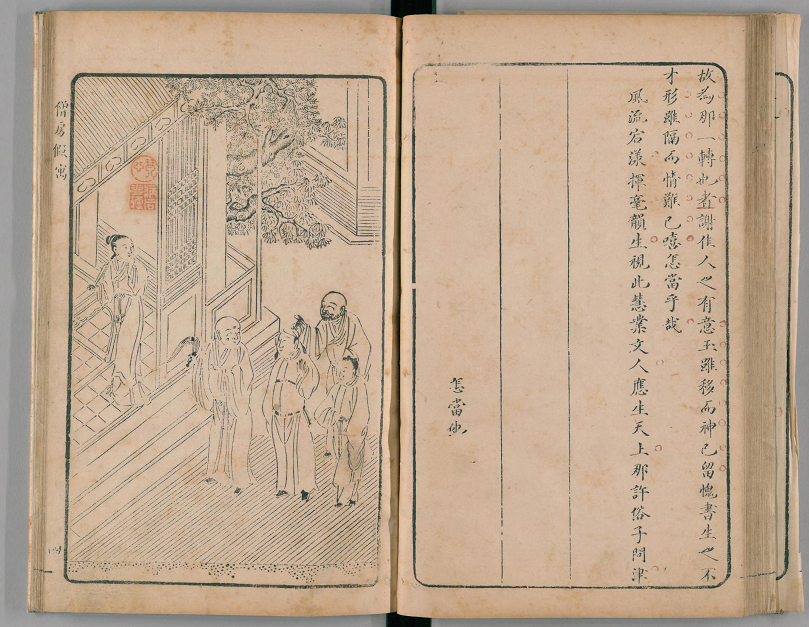 故為那一轉也者謝佳人之有意玉雖移而神已留愧書生之不
才形雖隔而情難已嘻怎當乎哉
風流宕漾揮毫韻生視此慧業文人應生天上那許俗子問津
怎當他
僧房假寓
四